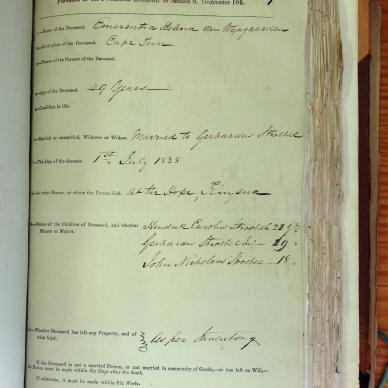 Pursuant to the Provisions contained in Section 9, Ordinance 104,
1.—Name of the Deceased. Emerentia Helena van Wyngaarden
2.—Birth-place of the Deceased. Cape Town
3.—Names of the Parents of the Deceased.
4.—Age of the Deceased. 49 Years
5.—Condition in life.
6.—Married or unmarried, Widower or Widow. Married to Gerhardus Stroebel
7.—The Day of the decease. 1st July 1838
8.—At what House, or where the Person died. At the Hope, Knysna
9.—Names of the Children of Deceased, and whether Minors or Majors.
Hendrik Carolus Stroebel
Gerhardus Stroebel
John Nicholaas 18
Whether Deceased has left any Property, and of what kind. As per Inventory
If the Deceased is not a married Person, or not married in community of Goods,—or has left no Will,—
must be made within Six Days after the death.
If otherwise, it must be made within Six Weeks.